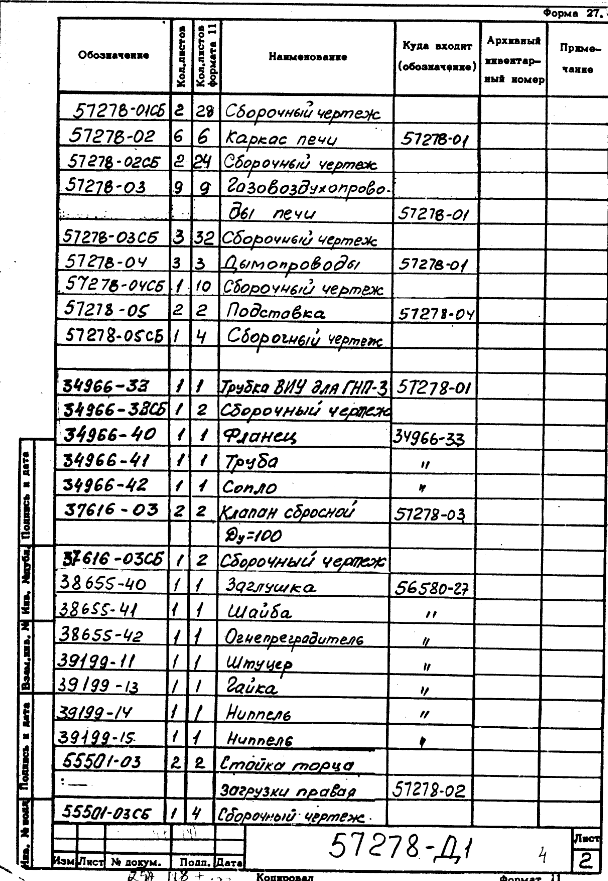 Форма 27.
Обозначение Кол.листов Кол.листов формата 11 Наименование Куда входит (обозначение) Архивный инвентарный номер Примечание
57278-01СБ 2 28 Сборочный чертеж
57278-02 6 6 Каркас печи 57278-01
57278-02СБ 2 24 Сборочный чертеж
57278-03 9 9 Газовоздухопрово-
ды печи 57278-01
57278-03СБ 3 32 Сборочный чертеж
57278-04 3 3 Дымопроводы 57278-01
57278-04СБ 1 10 Сборочный чертеж
57278-05 2 2 Подставка 57278-04
57278-05СБ 1 4 Сборочный чертеж
34966-33 1 1 Трубка ВИУ для ГНП-3 57278-01
34966-38СБ 1 2 Сборочный чертеж
34966-40 1 1 Фланец 34966-33
34966-41 1 1 Труба "
34966-42 1 1 Сопло "
37616-03 2 2 Клапан сбросной 57278-03
Ду=100
37616-03СБ 1 2 Сборочный чертеж
38655-40 1 1 Заглушка 56580-27
38655-41 1 1 Шайба "
38655-42 1 1 Огнепреградитель "
39199-11 1 1 Штуцер "
39199-13 1 1 Гайка "
39199-14 1 1 Ниппель "
39199-15 1 1 Ниппель "
55501-03 2 2 Стойка торца
загрузки правая 57278-02
55501-03СБ 1 4 Сборочный чертеж
Подпись и дата
Инв. №дубл.
Взам.инв. №
Подпись и дата
Инв. №подл
57278-Д1 4
Лист
2
Изм Лист № докум. Подп. Дата
Копировал Формат 11